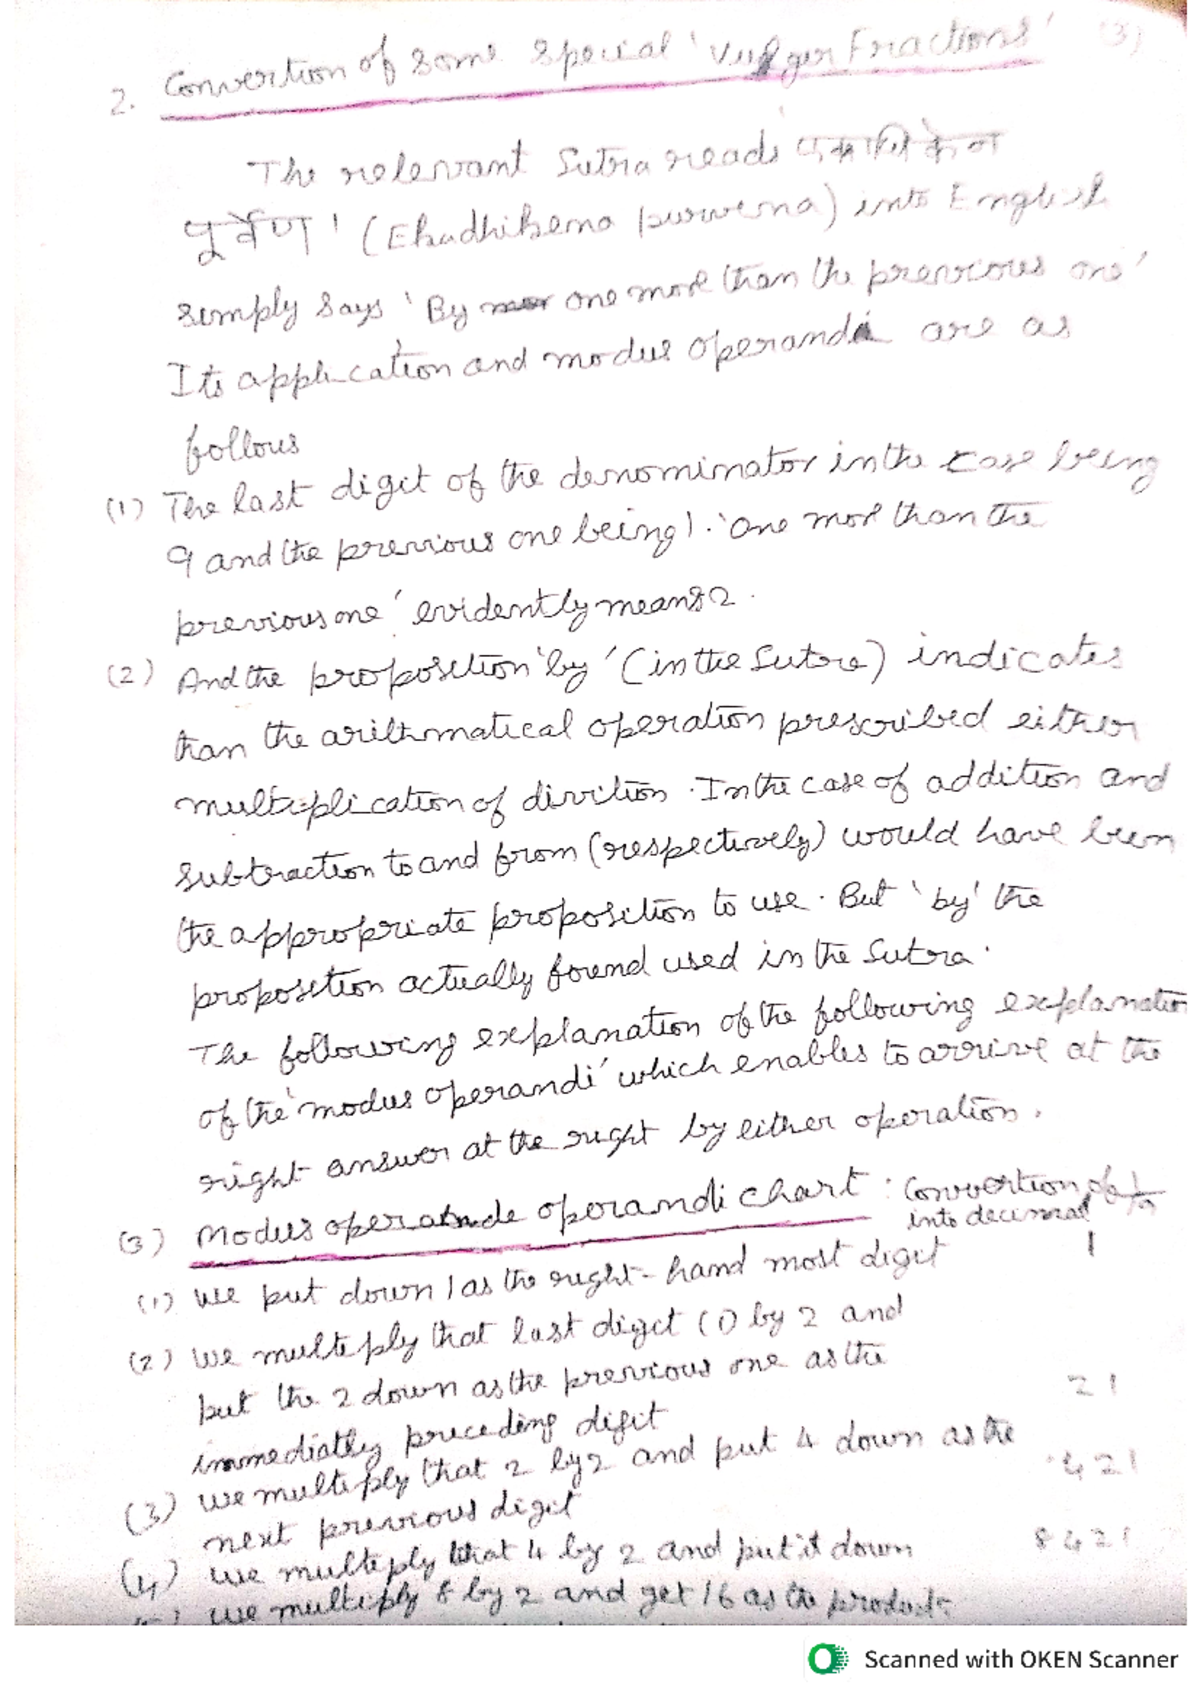 2. Convertion of Some Special 'Vulger Fractions' (3)
The relervant Sutra reads एकाधिकेन
पूर्वेण' (Ekadhikena purvena) into English
simply says 'By one more than the previous one'
Its application and modus operandi are as
follows
(1) The last digit of the denominator in the case being
9 and the previous one being 1. 'One more than the
previous one' evidently means 2.
(2) And the proposition 'by' (in the Sutra) indicates
than the arithmatical operation prescribed either
multiplication of divition. In the case of addition and
Subtraction to and from (respectively) would have been
the appropriate proposition to use. But 'by' the
proposition actually found used in the Sutra.
The following explanation of the following explanation
of the 'modus operandi' which enables to arrive at the
right answer at the right by either operation.
(3) Modus operande operandi chart : Convertion of 1/19
into decimal
(1) We put down 1 as the right-hand most digit 1
(2) We multiply that last digit (1) by 2 and
put the 2 down as the previous one as the
immediatly preceding digit 21
(3) We multiply that 2 by 2 and put 4 down as the
next previous digit 421
(4) we multiply that 4 by 2 and put it down 8421
we multiply 8 by 2 and get 16 as the product
Scanned with OKEN Scanner